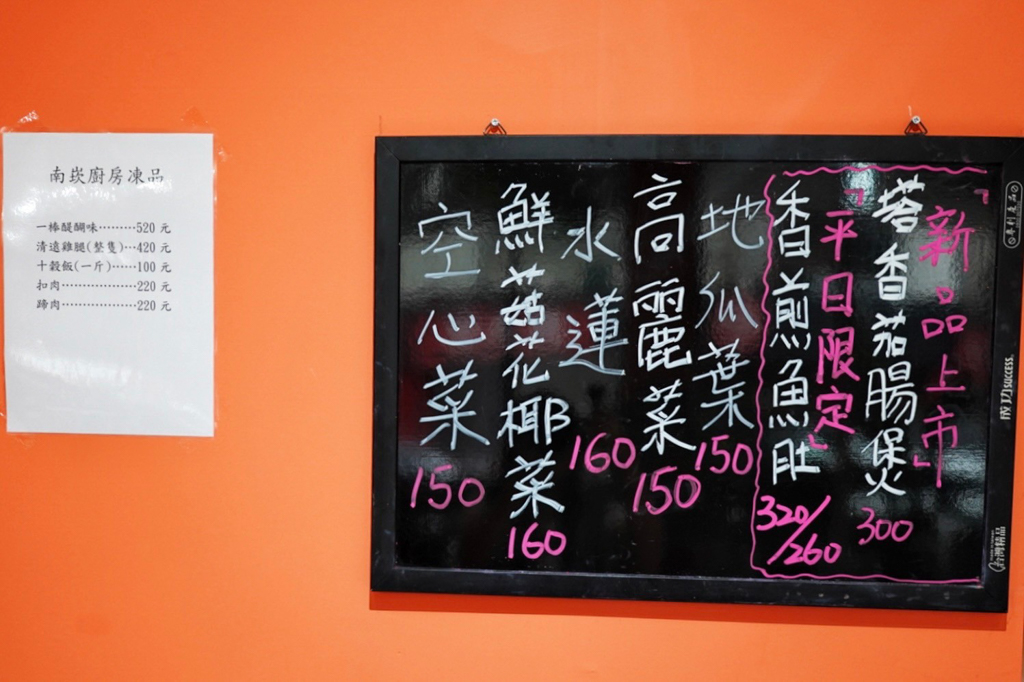 南崁廚房凍品
一棒醍醐味………520元
清遠雞腿(整隻)…420元
十穀飯(一斤)……100元
扣肉………………220元
蹄肉………………220元
「新品上市」
塔香茄腸煲
300
「平日限定」
香煎魚肚
320/260
地瓜葉
150
高麗菜
150
水蓮
160
鮮菇花椰菜
160
空心菜
150
專利產品
成功SUCCESS
台灣精品